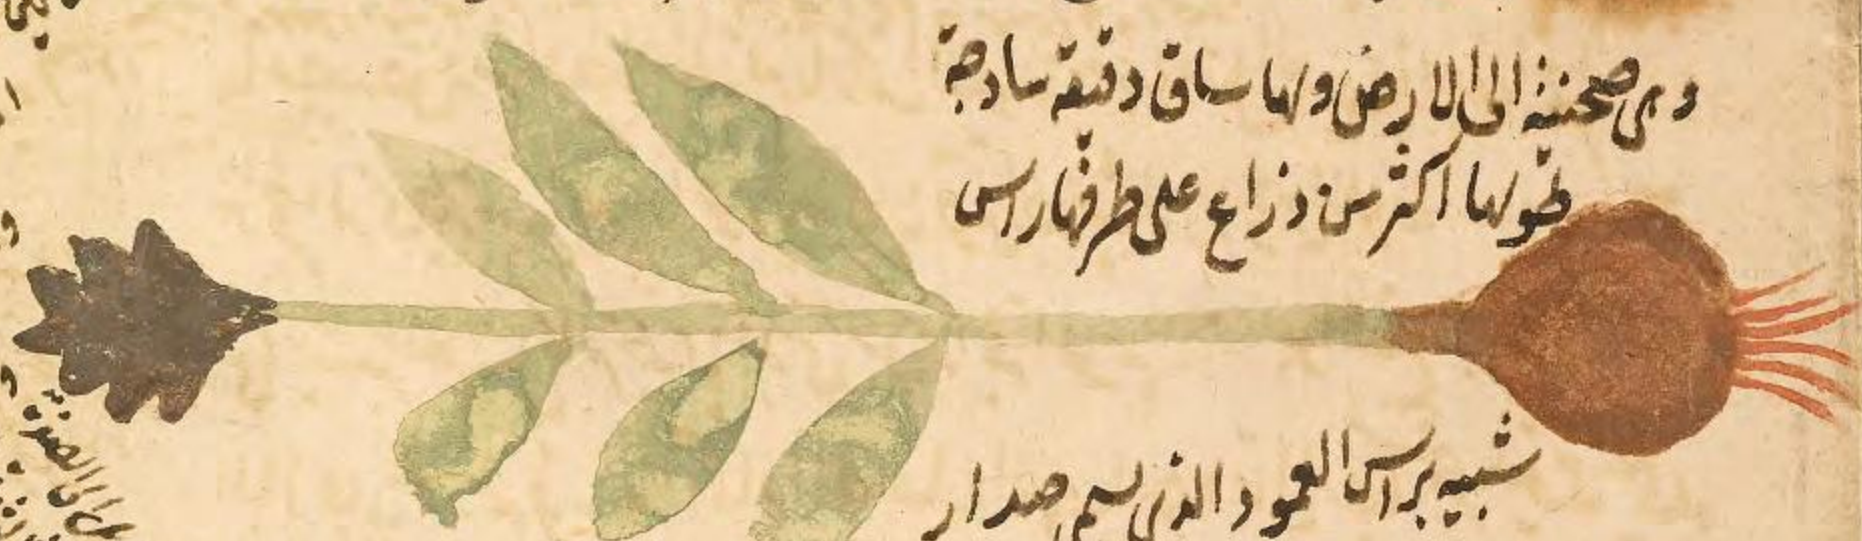 وهى صحنية الى الارض ولها ساق دقيقة سادجة
طولها اكثر من ذراع على طرفها راس
شبيه براس العمود الذى يسمى صدار
الى الصفرة